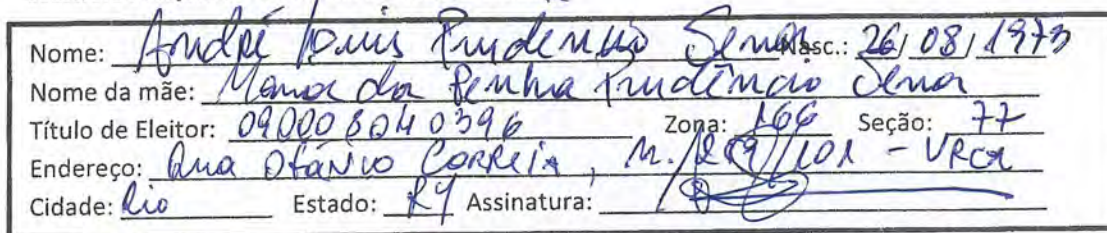 Nome: André Luis Prudencio Sena Nasc.: 26/08/1973
Nome da mãe: Maria da Penha Prudêncio Sena
Título de Eleitor: 090008040396 Zona: 166 Seção: 77
Endereço: Rua Otávio Correia, n. /101 - URCA
Cidade: Rio Estado: RJ Assinatura: